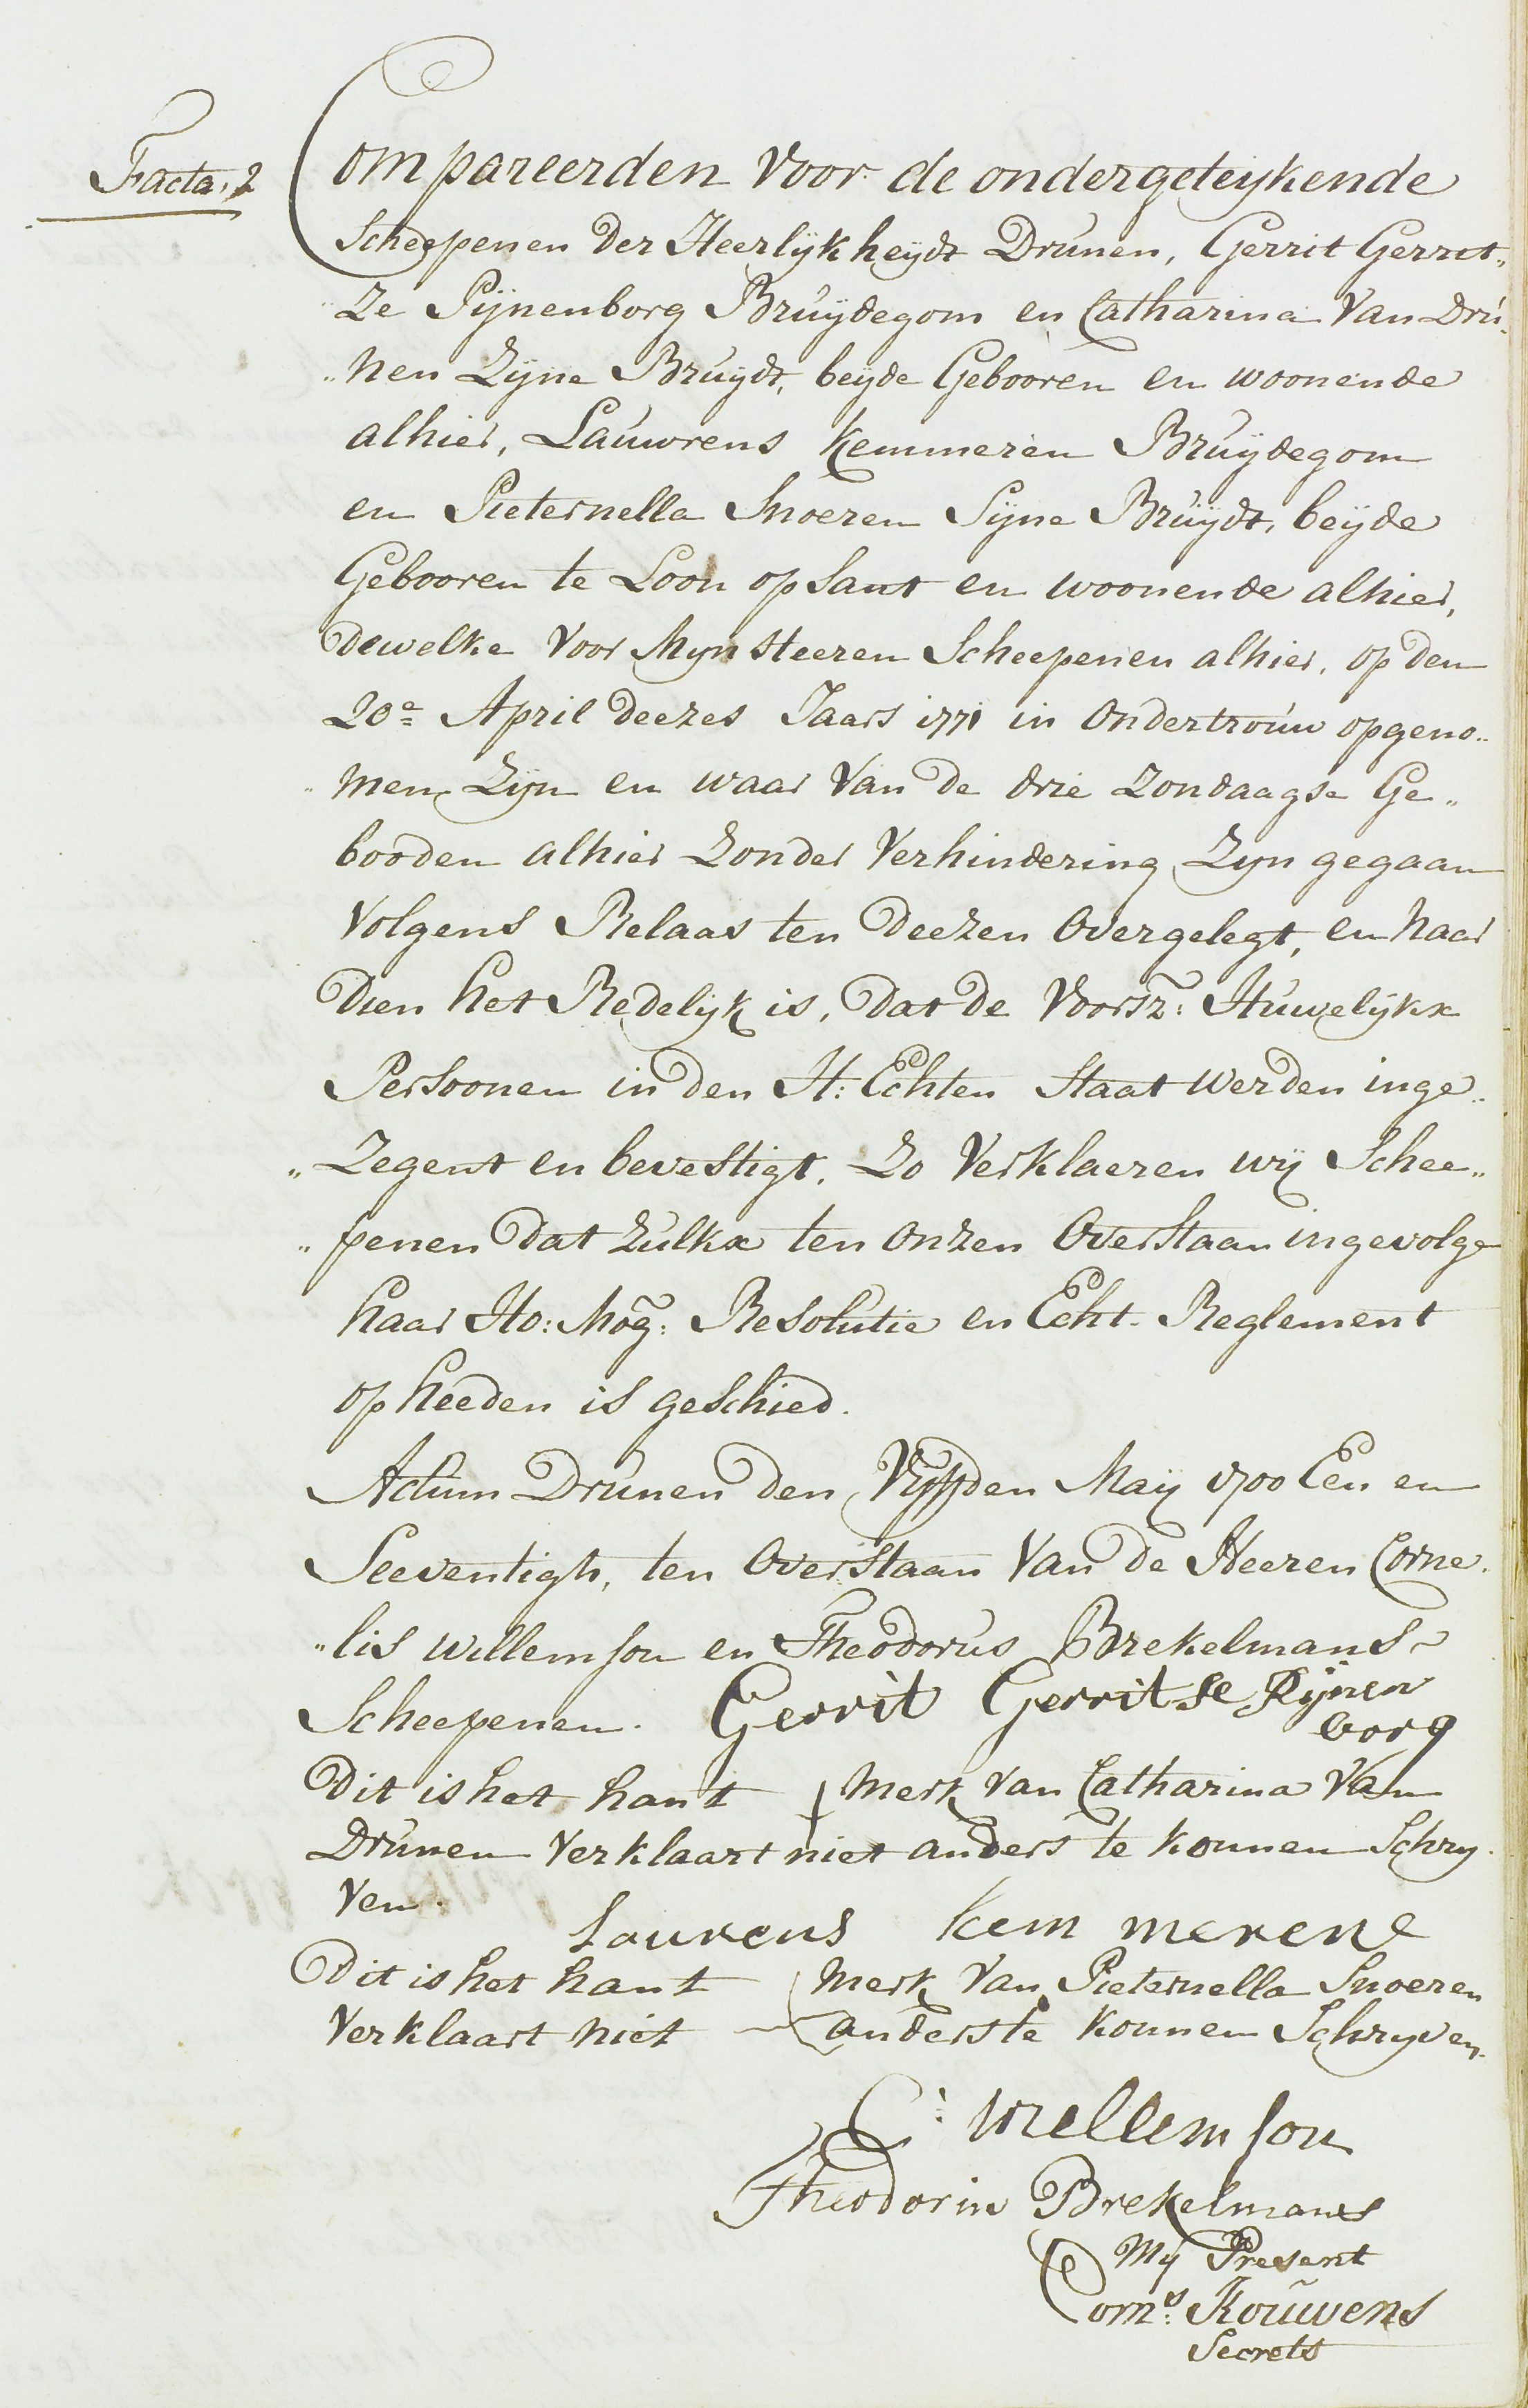 Facta, 2
Compareerden Voor de ondergeteijkende
Scheepenen der Heerlijkheijdt Drunen, Gerrit Gerret„
Ze Pijnenborg Bruijdegom en Catharina Van Dru„
„nen Zijne Bruijdt, beijde Gebooren en woonende
alhier, Lauwrens Kemmeren Bruijdegom
en Pieternella Snoeren Sijne Bruijdt, beijde
Gebooren te Loon op Sant en woonende alhier,
dewelke Voor Mijn Heeren Scheepenen alhier, op den
20e April deezes Jaars 1771 in Ondertrouw opgeno„
„men Zijn en waar Van de drie Zondaagse Ge„
booden alhier Zonder Verhindering Zijn gegaan
Volgens Relaas ten deezen Overgelegt, en naar
dien het Redelijk is, dat de Voorsz: Huwelijkx
Persoonen in den H: Echten Staat werden inge„
„Zegent en bevestigt. Zo Verklaeren wij Schee„
„penen dat Zulkx ten onzen Overstaan ingevolge
haar Ho: Mog: Resolutie en Echt-Reglement
op heeden is geschied.
Actum Drunen den Vijffden Maij 1700 Een en
Seeventigh, ten Overstaan Van de Heeren Corne„
„lis Willemson en Theodorus Brekelmans
Scheepenen. Gerrit Gerritse Pijnen
borg
Dit is het hant merk Van Catharina Van
Drunen Verklaart niet anders te konnen Schrij
Ven.
Laurens kem merene
Dit is het hant merk Van Pieternella Snoeren
Verklaart niet anders te konnen Schrijven.
C: Willemson
Theodorus Brekelmans
Mij Present
Corns: Kouwens
Secrets